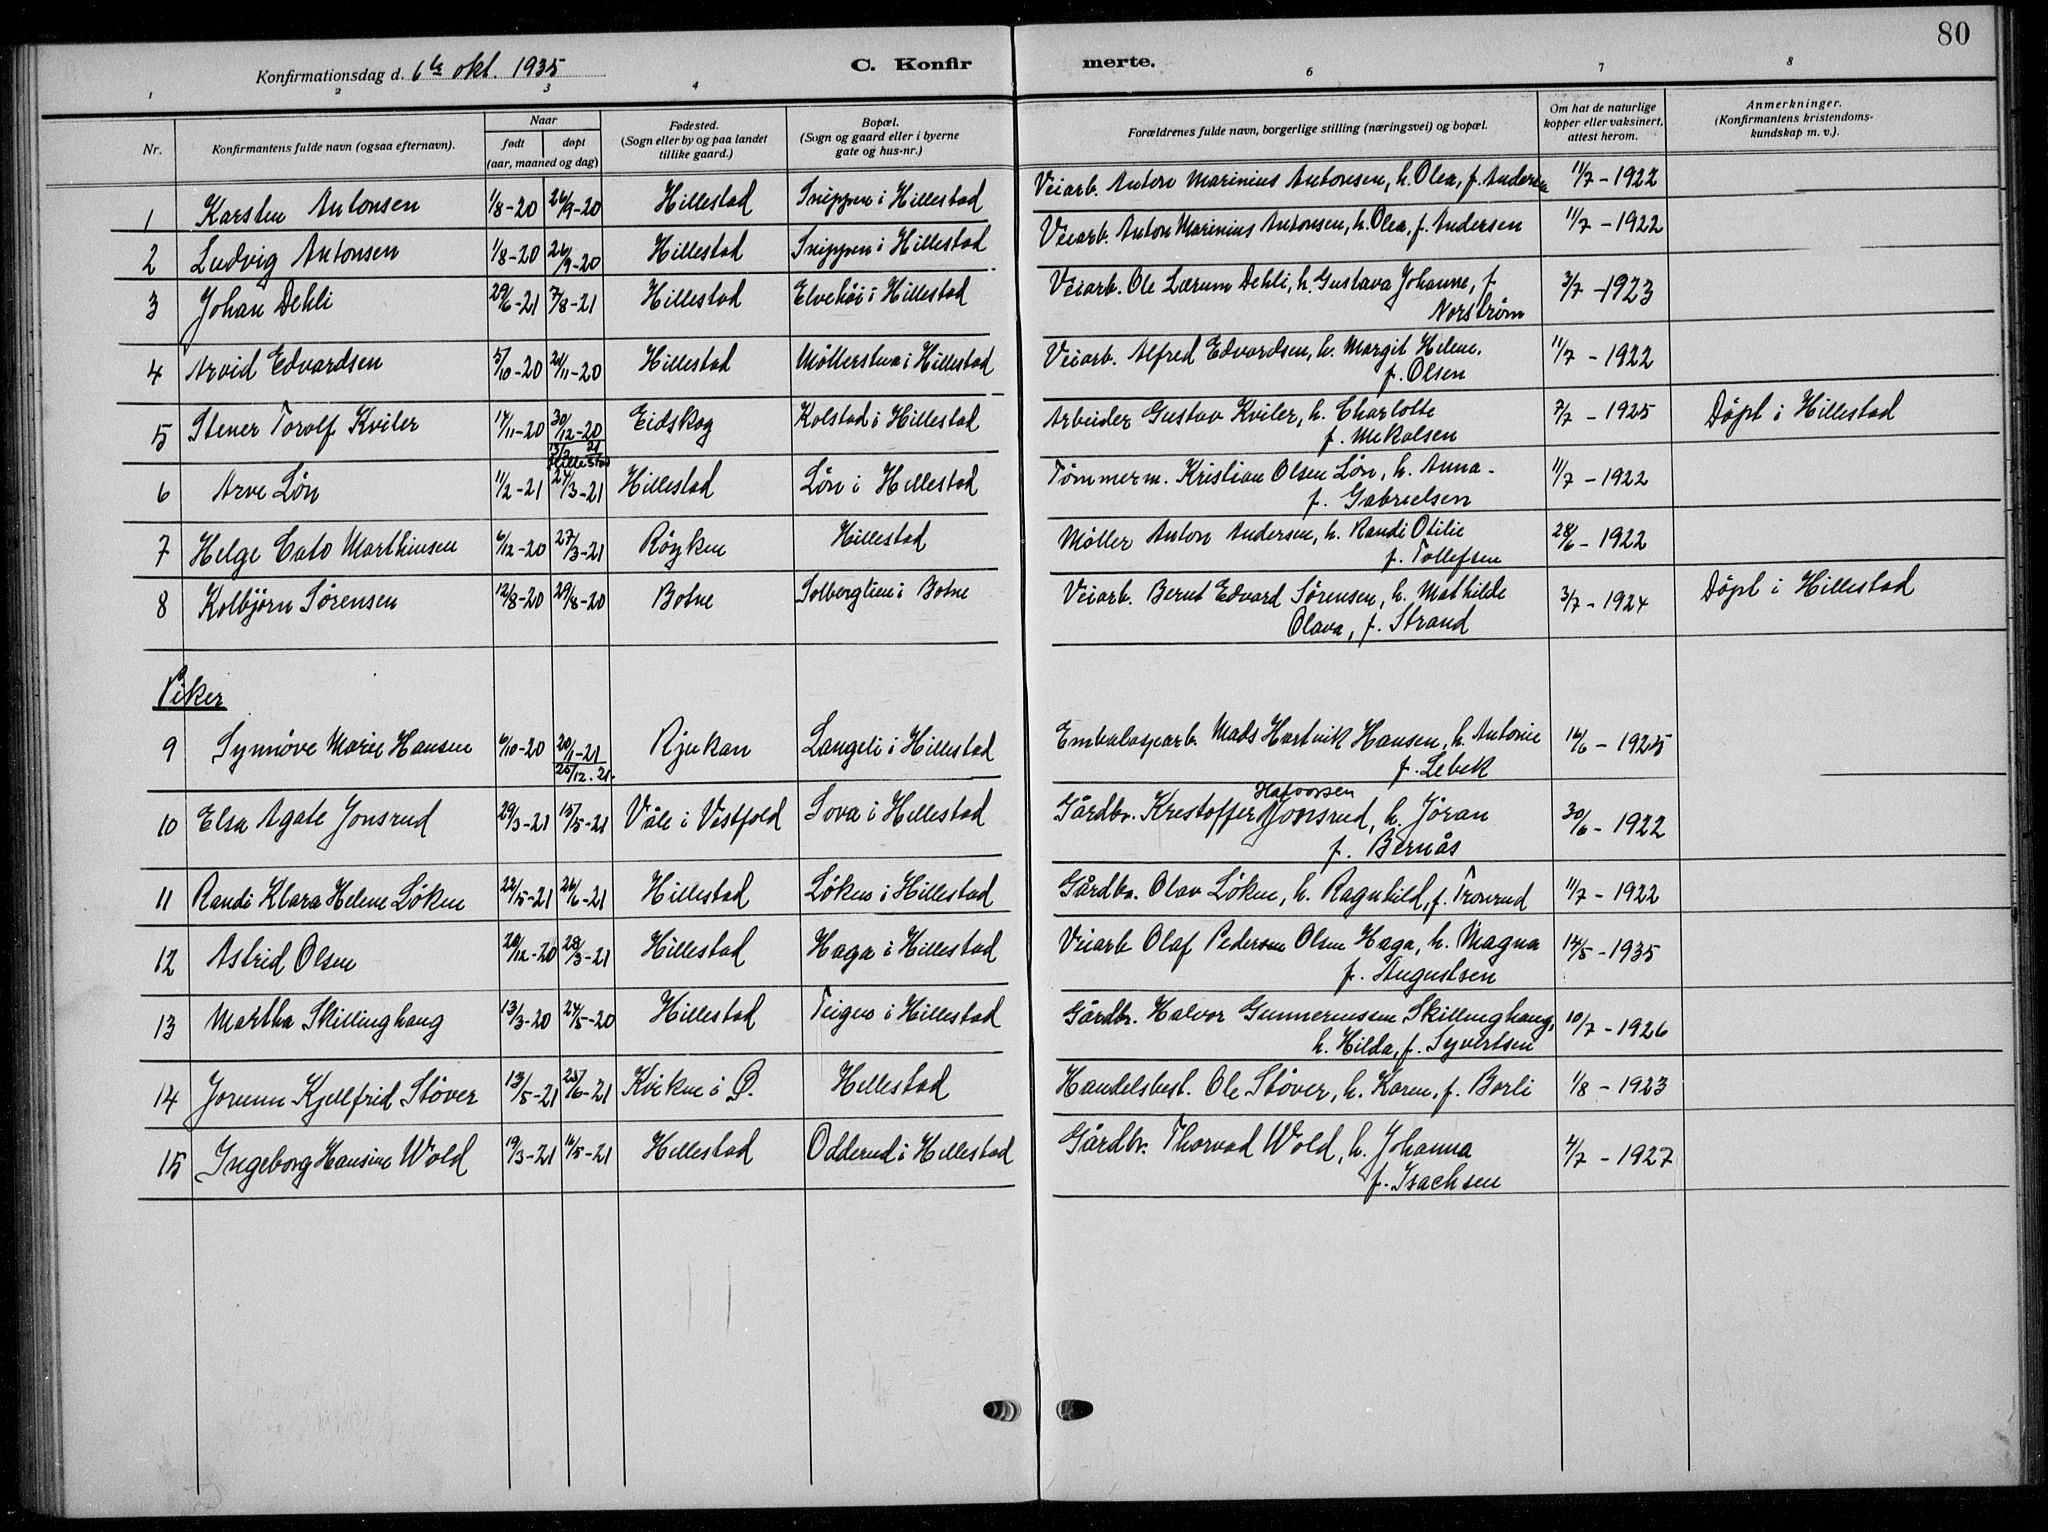 80
Konfirmationsdag d. 6te okt. 1935 C. Konfirmerte.
1 2 3 4 6 7 8
Nr. Konfirmantens fulde navn (ogsaa efternavn). Naar født døpt (aar, maaned og dag) Fødested. (Sogn eller by og paa landet tillike gaard.) Bopæl. (Sogn og gaard eller i byerne gate og hus-nr.) Forældrenes fulde navn, borgerlige stilling (næringsvei) og bopæl. Om hat de naturlige kopper eller vaksinert, attest herom. Anmerkninger. (Konfirmantens kristendomskundskap m. v.).
1 Karsten Antonsen 1/8-20 26/9-20 Hillestad Snippen i Hillestad Veiarb. Anton Marinius Antonsen, h. Olea, f. Andersen 11/7-1922
2 Ludvig Antonsen 1/8-20 26/9-20 Hillestad Snippen i Hillestad Veiarb. Anton Marinius Antonsen, h. Olea, f. Andersen 11/7-1922
3 Johan Dehli 29/6-21 7/8-21 Hillestad Elvehøi i Hillestad Veiarb. Ole Lærum Dehli, h. Gustava Johanne, f. Norstrøm 3/7-1923
4 Arvid Edvardsen 5/10-20 21/11-20 Hillestad Møllerstua i Hillestad Veiarb. Alfred Edvardsen, h. Margit Helene, f. Olsen 11/7-1922
5 Stener Torolf Kviler 17/11-20 30/12-20 13/2 21 Hillestad Eidskog Kolstad i Hillestad Arbeider Gustav Kviler, h. Charlotte f. Mikalsen 7/7-1925 Døpt i Hillestad
6 Arve Løn 11/2-21 27/3-21 Hillestad Løn i Hillestad Tømmerm. Kristian Olsen Løn, h. Anna f. Gabrielsen 11/7-1922
7 Helge Cato Marthinsen 6/12-20 27/3-21 Røyken Hillestad Møller Anton Andersen, h. Randi Otilie f. Tollefsen 28/6-1922
8 Kolbjørn Sørensen 12/8-20 29/8-20 Botne Solberglien i Botne Veiarb. Bernt Edvard Sørensen, h. Mathilde Olava, f. Strand 3/7-1924 Døpt i Hillestad
Piker
9 Synnøve Marie Hansen 6/10-20 20/1-21 25/12-21 Rjukan Langeli i Hillestad Embalagearb. Mads Hartvik Hansen, h. Antonie f. Lebek 16/6-1925
10 Elsa Agate Jonsrud 29/3-21 15/5-21 Våle i Vestfold Sova i Hillestad Gårdbr. Krestoffer Halvorsen Jonsrud, h. Jøran f. Bernås 30/6-1922
11 Randi Klara Helene Løken 22/5-21 26/6-21 Hillestad Løken i Hillestad Gårdbr. Olav Løken, h. Ragnhild, f. Tronrud 11/7-1922
12 Astrid Olsen 20/12-20 28/3-21 Hillestad Haga i Hillestad Veiarb Olaf Pedersen Olsen Haga, h. Magna f. Augustsen 14/5-1935
13 Martha Skillinghaug 13/3-20 24/5-20 Hillestad Teigen i Hillestad Gårdbr. Halvor Gunneriusen Skillinghaug, h. Hilda, f. Syvertsen 10/7-1926
14 Jorunn Kjellfrid Støver 13/5-21 25/6-21 Kvikne i Ø. Hillestad Handelsbest. Ole Støver, h. Karen, f. Borli 1/8-1923
15 Ingeborg Hansine Wold 19/3-21 16/5-21 Hillestad Odderud i Hillestad Gårdbr. Thorvad Wold, h. Johanna f. Isachsen 4/7-1927